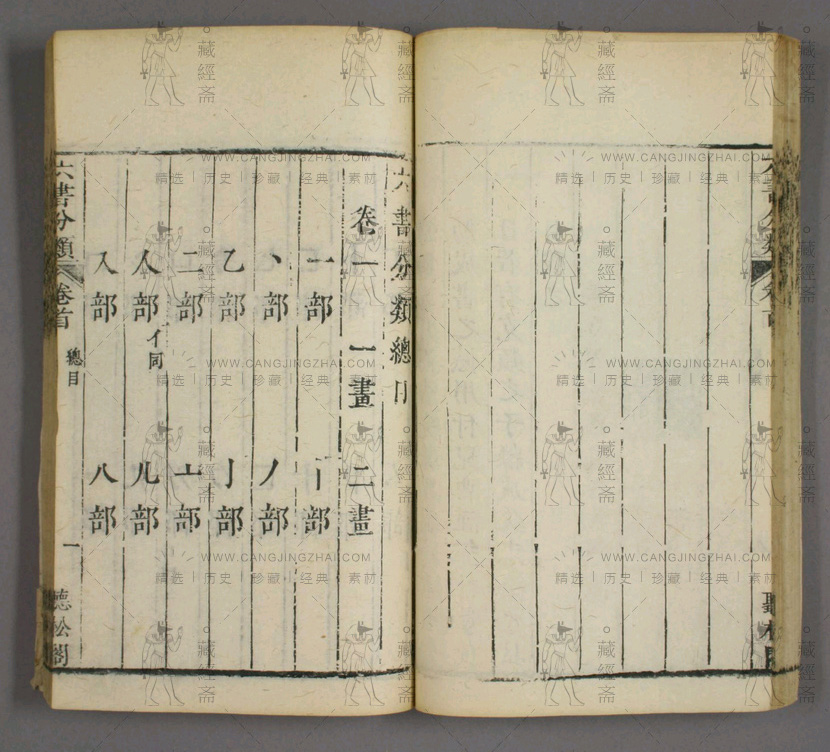 六書分類總目
卷一 一畫 二畫
一部 丨部
丶部 丿部
乙部 亅部
二部 亠部
人部 亻同 儿部
入部 八部
六書分類 卷首 總目 一 聽松閣
WWW.CANGJINGZHAI.COM
精选 | 历史 | 珍藏 | 经典 | 素材
藏經斋